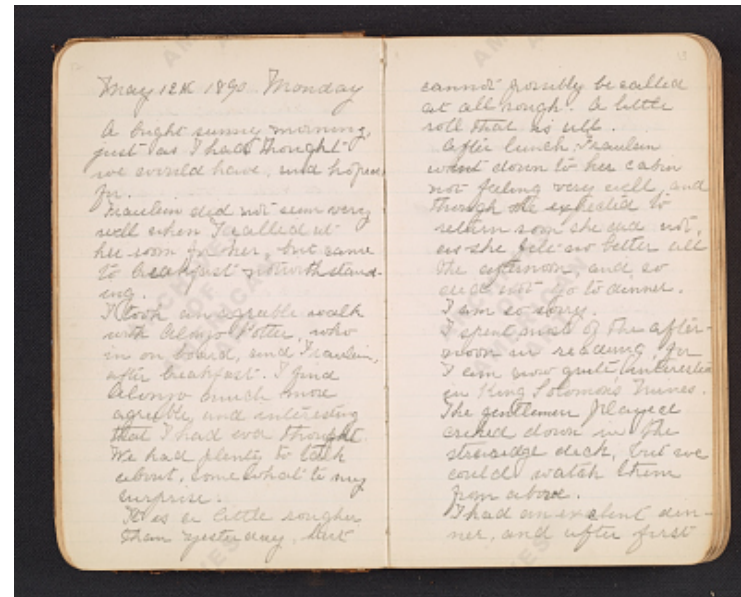 May 12th 1890. Monday
A bright sunny morning,
just as I had thought
we would have, and hoped
for.
Fraulein did not seem very
well when I called at
her room for her, but came
to breakfast notwithstand-
ing.
I took an agreable walk
with Alonzo Potter, who
is on board, and Fraulein,
after breakfast. I find
Alonzo much more
agreable and interesting
that I had ever thought.
We had plenty to talk
about, somewhat to my
surprise.
It is a little rougher
than yesterday, but
cannot possibly be called
at all rough. A little
roll that is all.
After lunch Fraulein
went down to her cabin
not feeling very well, and
though she expected to
return soon she did not,
as she felt no better all
the afternoon, and so
did not go to dinner.
I am so sorry.
I spent most of the after-
noon in reading, for
I am now quite interested
in King Solomon's Mines.
The gentlemen played
cricket down in the
steerage deck, but we
could watch them
from above.
I had an exelent din-
ner, and after first